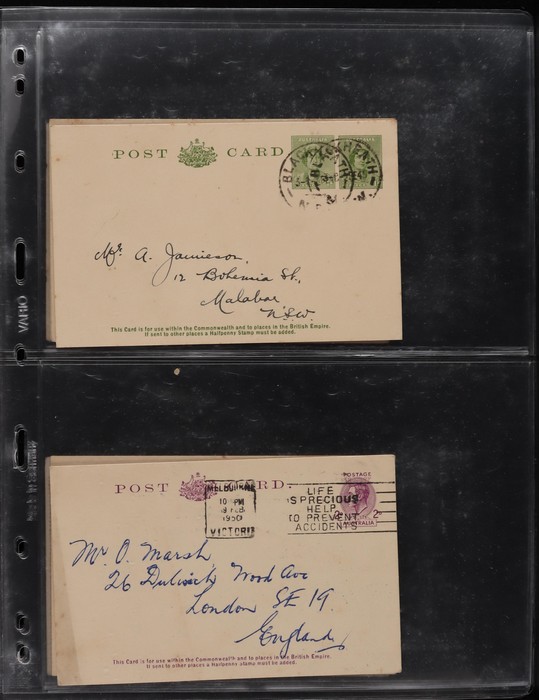 POST CARD
BLACKHEATH
Mr. A. Jamieson,
12 Bohemia St.,
Malabar
N.S.W.
This Card is for use within the Commonwealth and to places in the British Empire.
If sent to other places a Halfpenny Stamp must be added.
VARIO
POST CARD.
MELBOURNE
10 PM
FEB
1950
VICTORIA
LIFE
IS PRECIOUS
HELP
TO PREVENT
ACCIDENTS
POSTAGE
2D
AUSTRALIA
Mr O. Marsh,
26 Dulwich Wood Ave
London SE 19.
England,
This Card is for use within the Commonwealth and to places in the British Empire.
If sent to other places a Halfpenny stamp must be added.